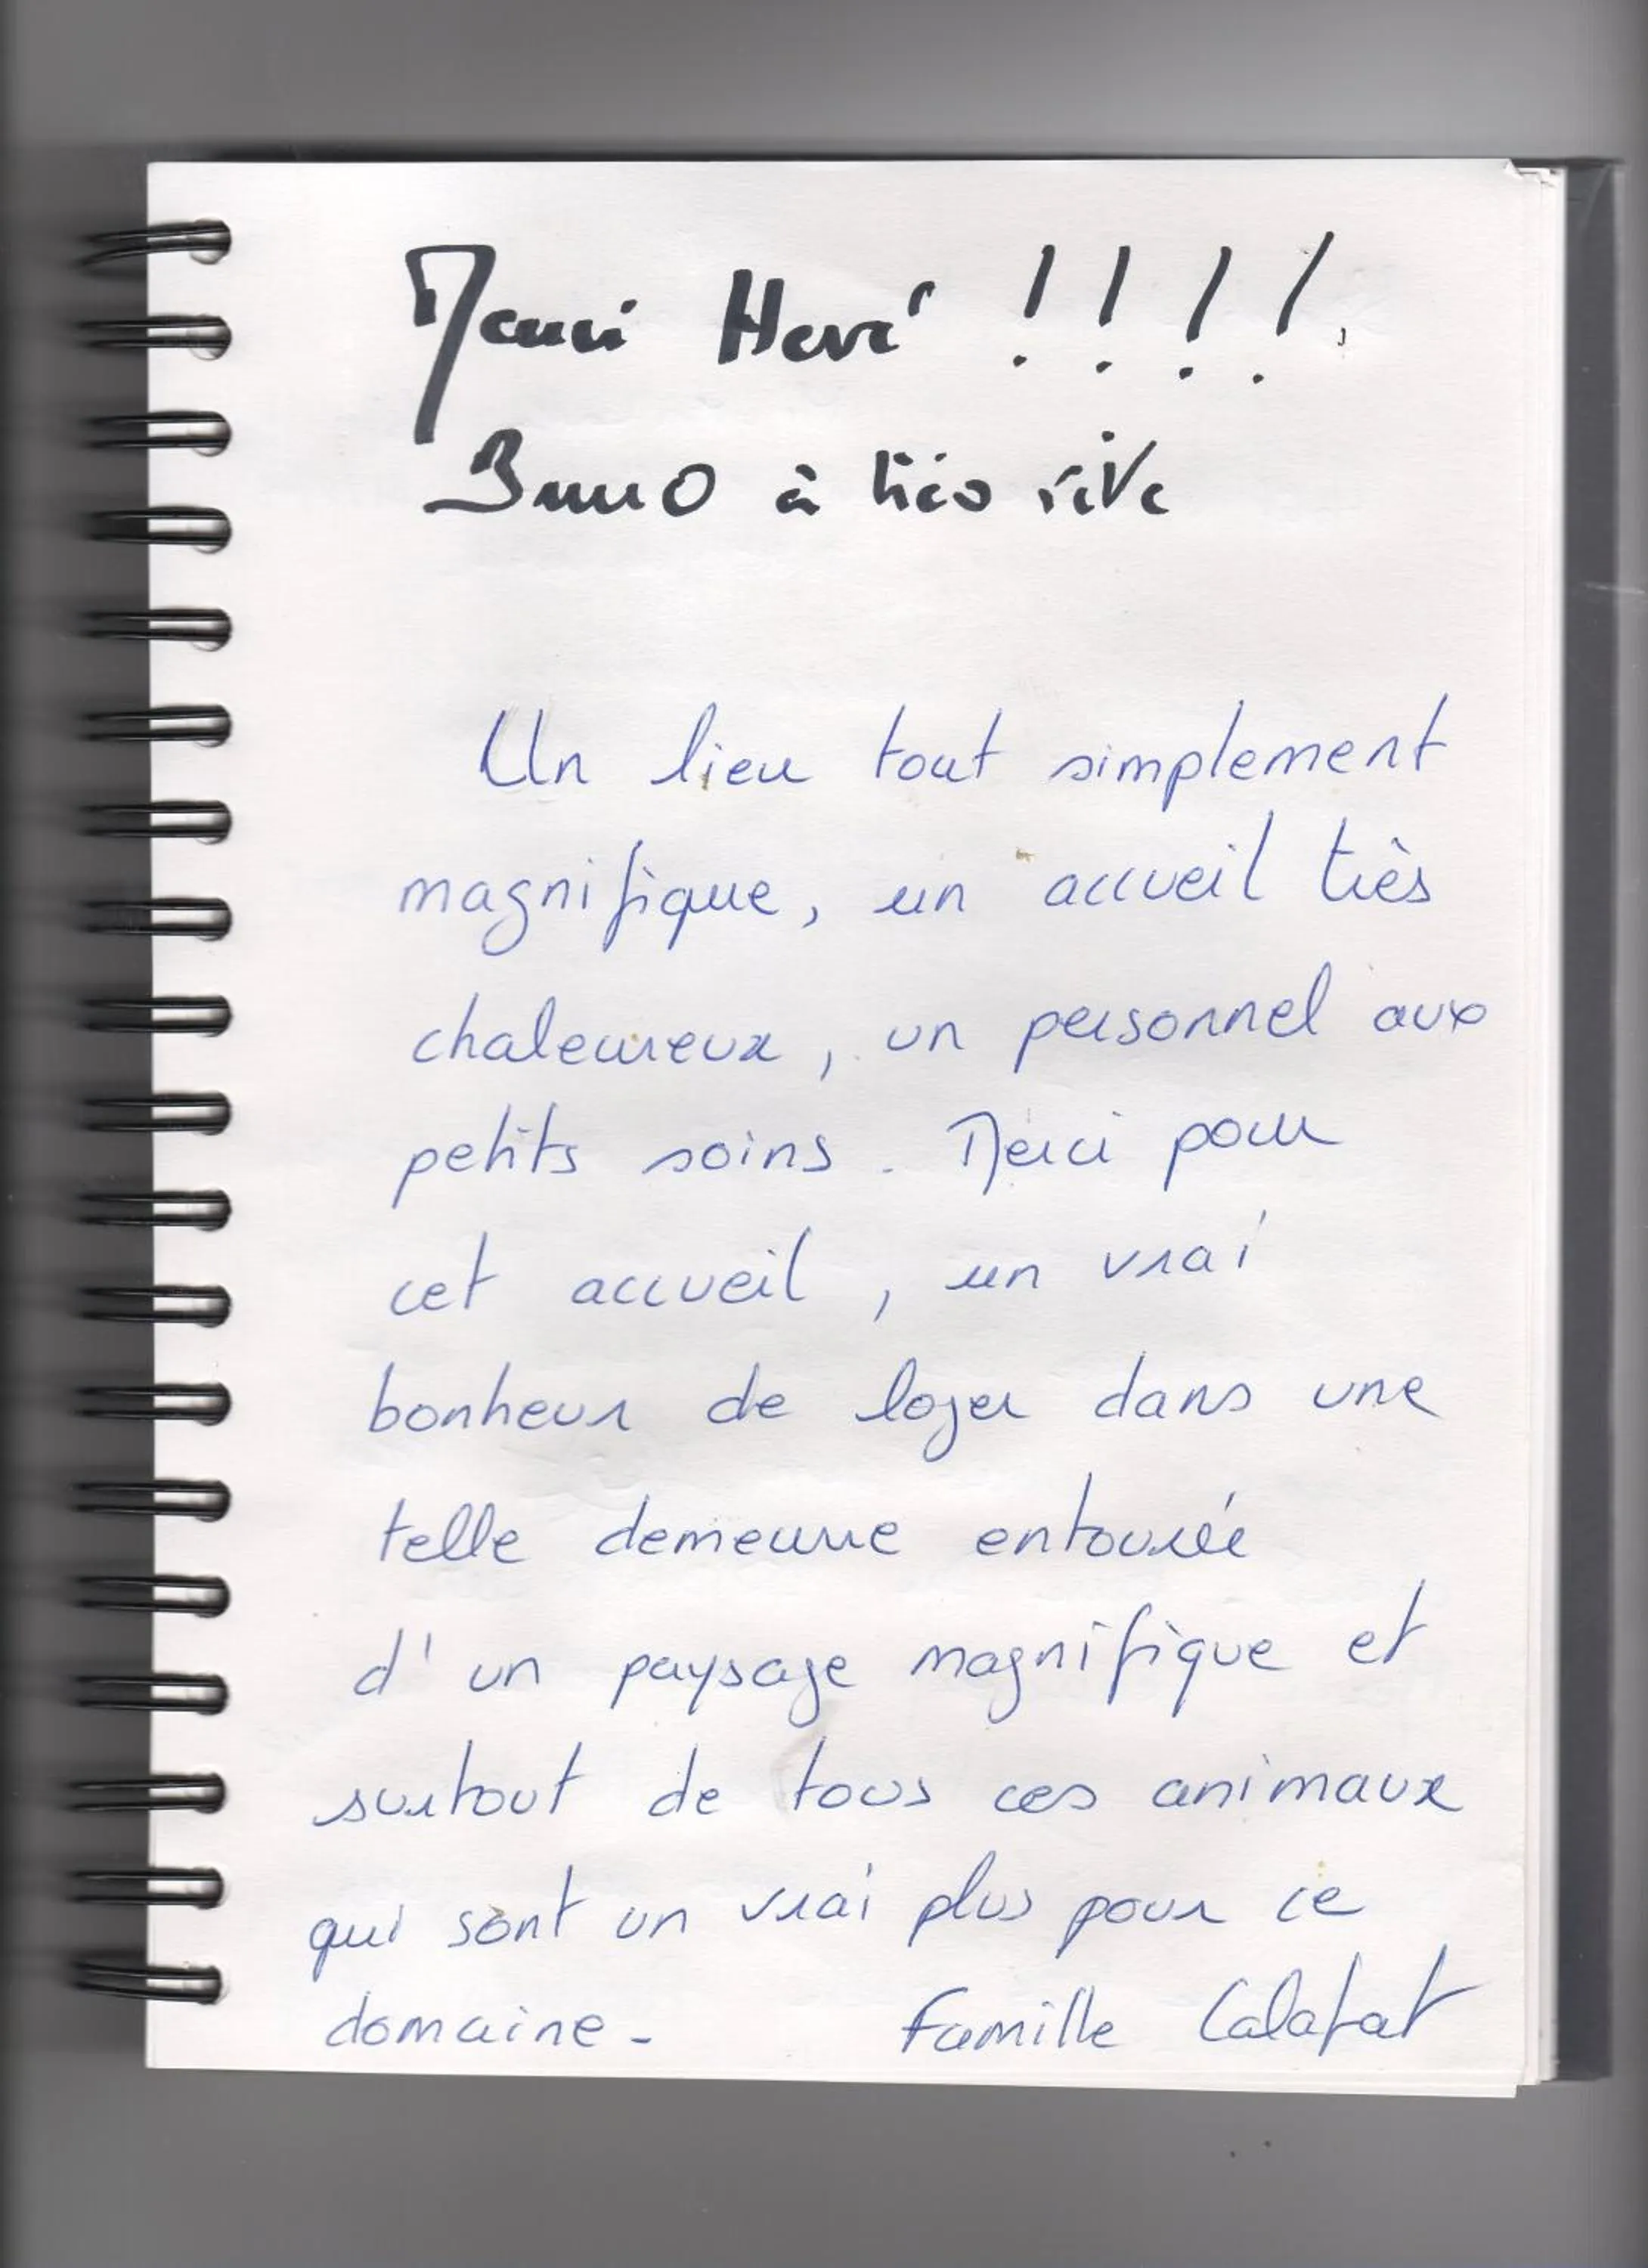 Merci Hervé !!!!
Bruno à très vite
Un lieu tout simplement
magnifique, un accueil très
chaleureux, un personnel aux
petits soins. Merci pour
cet accueil, un vrai
bonheur de loger dans une
telle demeure entourée
d'un paysage magnifique et
surtout de tous ces animaux
qui sont un vrai plus pour ce
domaine - Famille Calafat